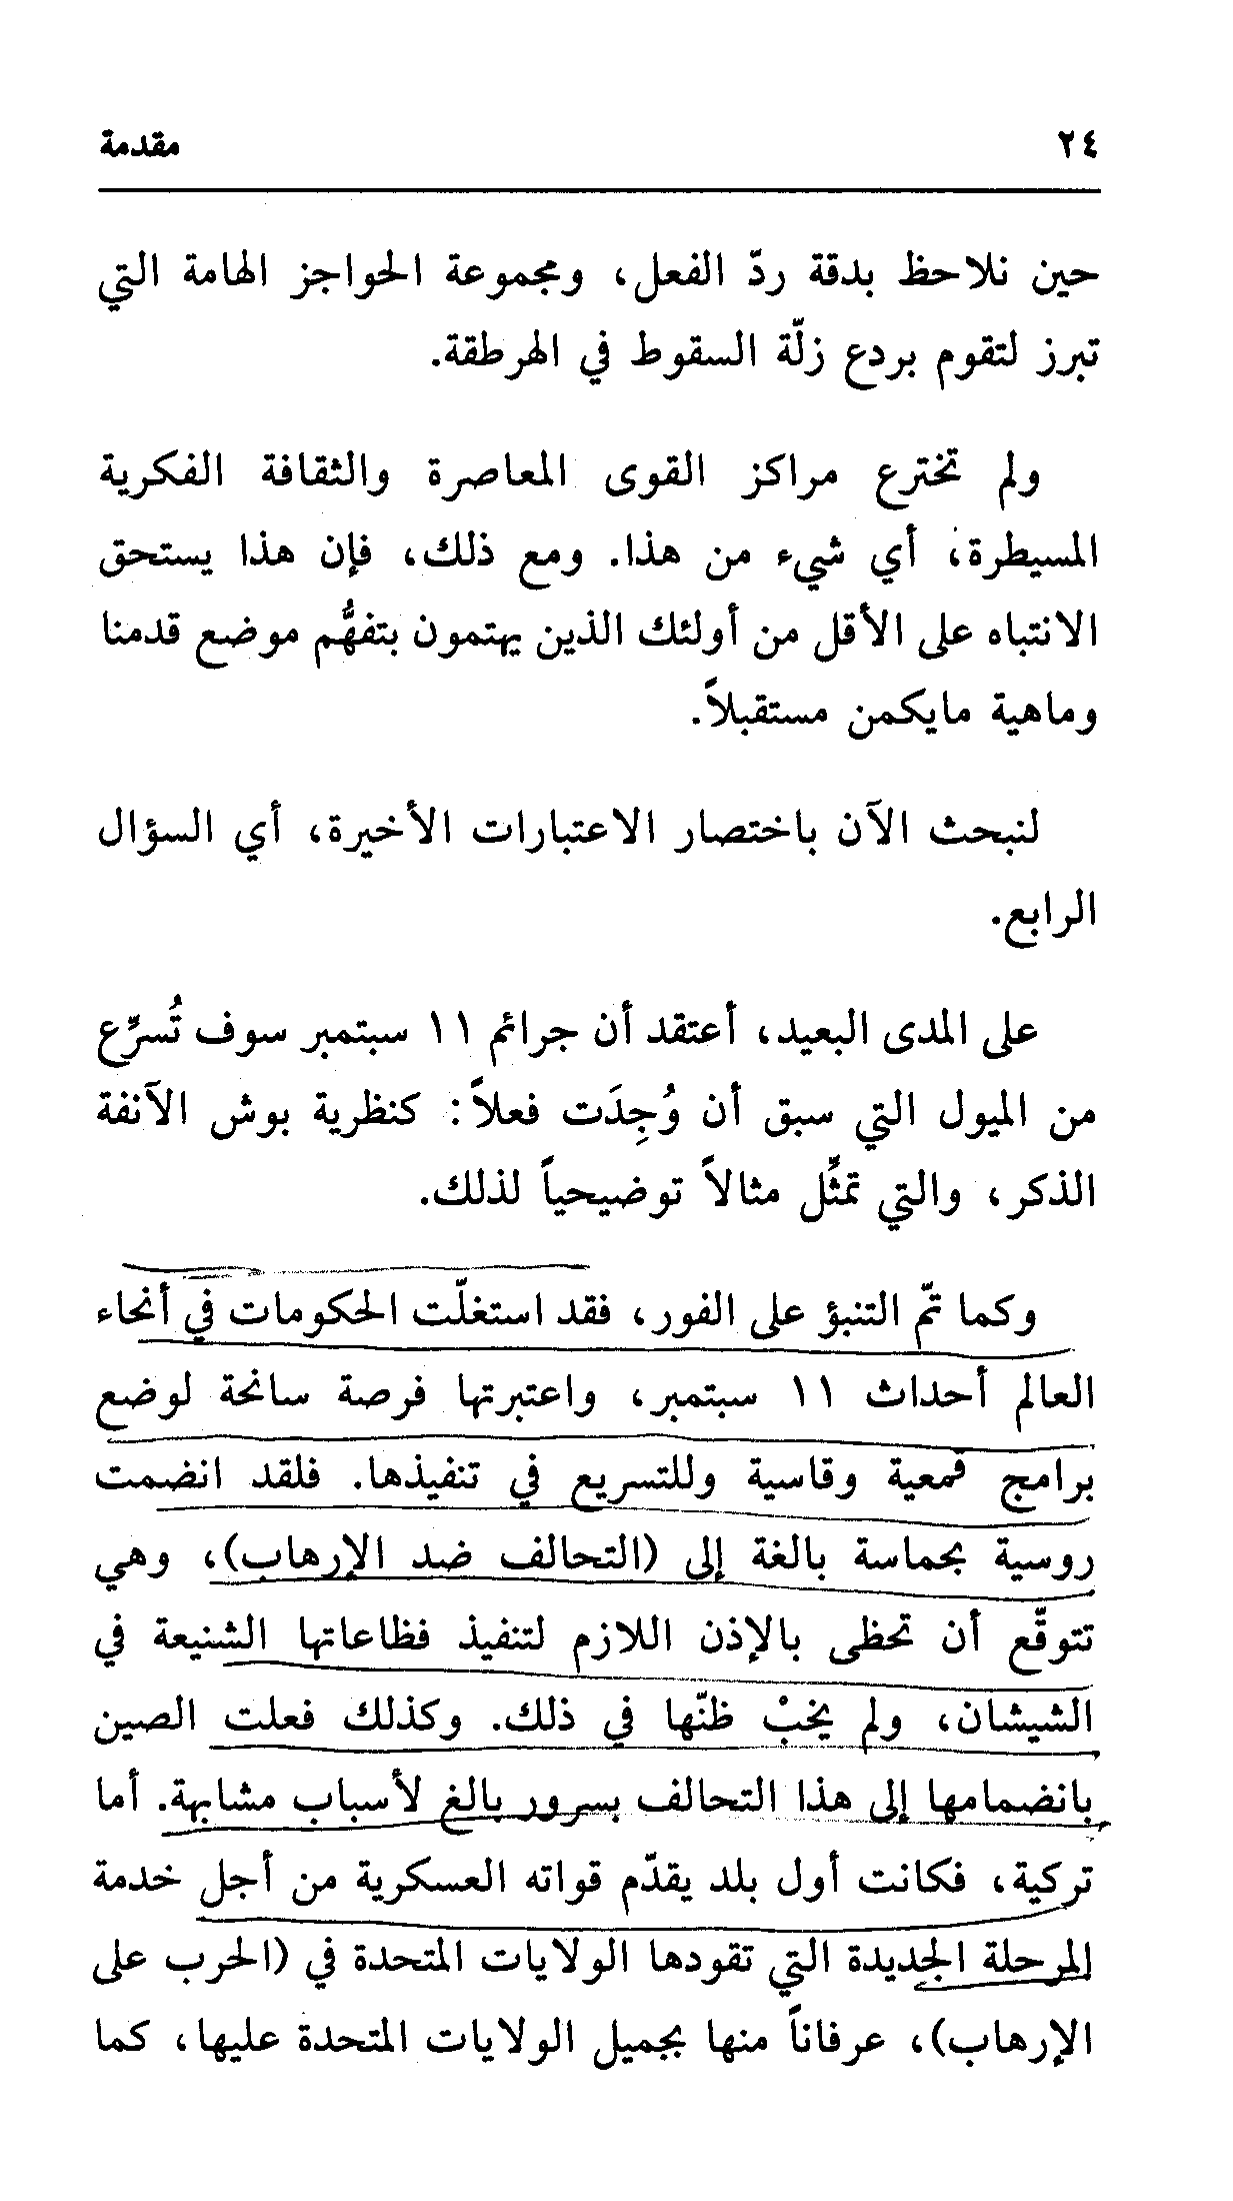 ٢٤
مقدمة
حين نلاحظ بدقة ردّ الفعل، ومجموعة الحواجز الهامة التي
تبرز لتقوم بردع زلّة السقوط في الهرطقة.
ولم تخترع مراكز القوى المعاصرة والثقافة الفكرية
المسيطرة، أي شيء من هذا. ومع ذلك، فإن هذا يستحق
الانتباه على الأقل من أولئك الذين يهتمون بتفهُّم موضع قدمنا
وماهية مايكمن مستقبلاً.
لنبحث الآن باختصار الاعتبارات الأخيرة، أي السؤال
الرابع.
على المدى البعيد، أعتقد أن جرائم ١١ سبتمبر سوف تُسرِّع
من الميول التي سبق أن وُجِدَت فعلاً: كنظرية بوش الآنفة
الذكر، والتي تمثِّل مثالاً توضيحياً لذلك.
وكما تمّ التنبؤ على الفور، فقد استغلّت الحكومات في أنحاء
العالم أحداث ١١ سبتمبر، واعتبرتها فرصة سانحة لوضع
برامج قمعية وقاسية وللتسريع في تنفيذها. فلقد انضمت
روسية بحماسة بالغة إلى (التحالف ضد الإرهاب)، وهي
تتوقّع أن تحظى بالإذن اللازم لتنفيذ فظاعاتها الشنيعة في
الشيشان، ولم يخبْ ظنّها في ذلك. وكذلك فعلت الصين
بانضمامها إلى هذا التحالف بسرور بالغ لأسباب مشابهة. أما
تركية، فكانت أول بلد يقدّم قواته العسكرية من أجل خدمة
المرحلة الجديدة التي تقودها الولايات المتحدة في (الحرب على
الإرهاب)، عرفاناً منها بجميل الولايات المتحدة عليها، كما